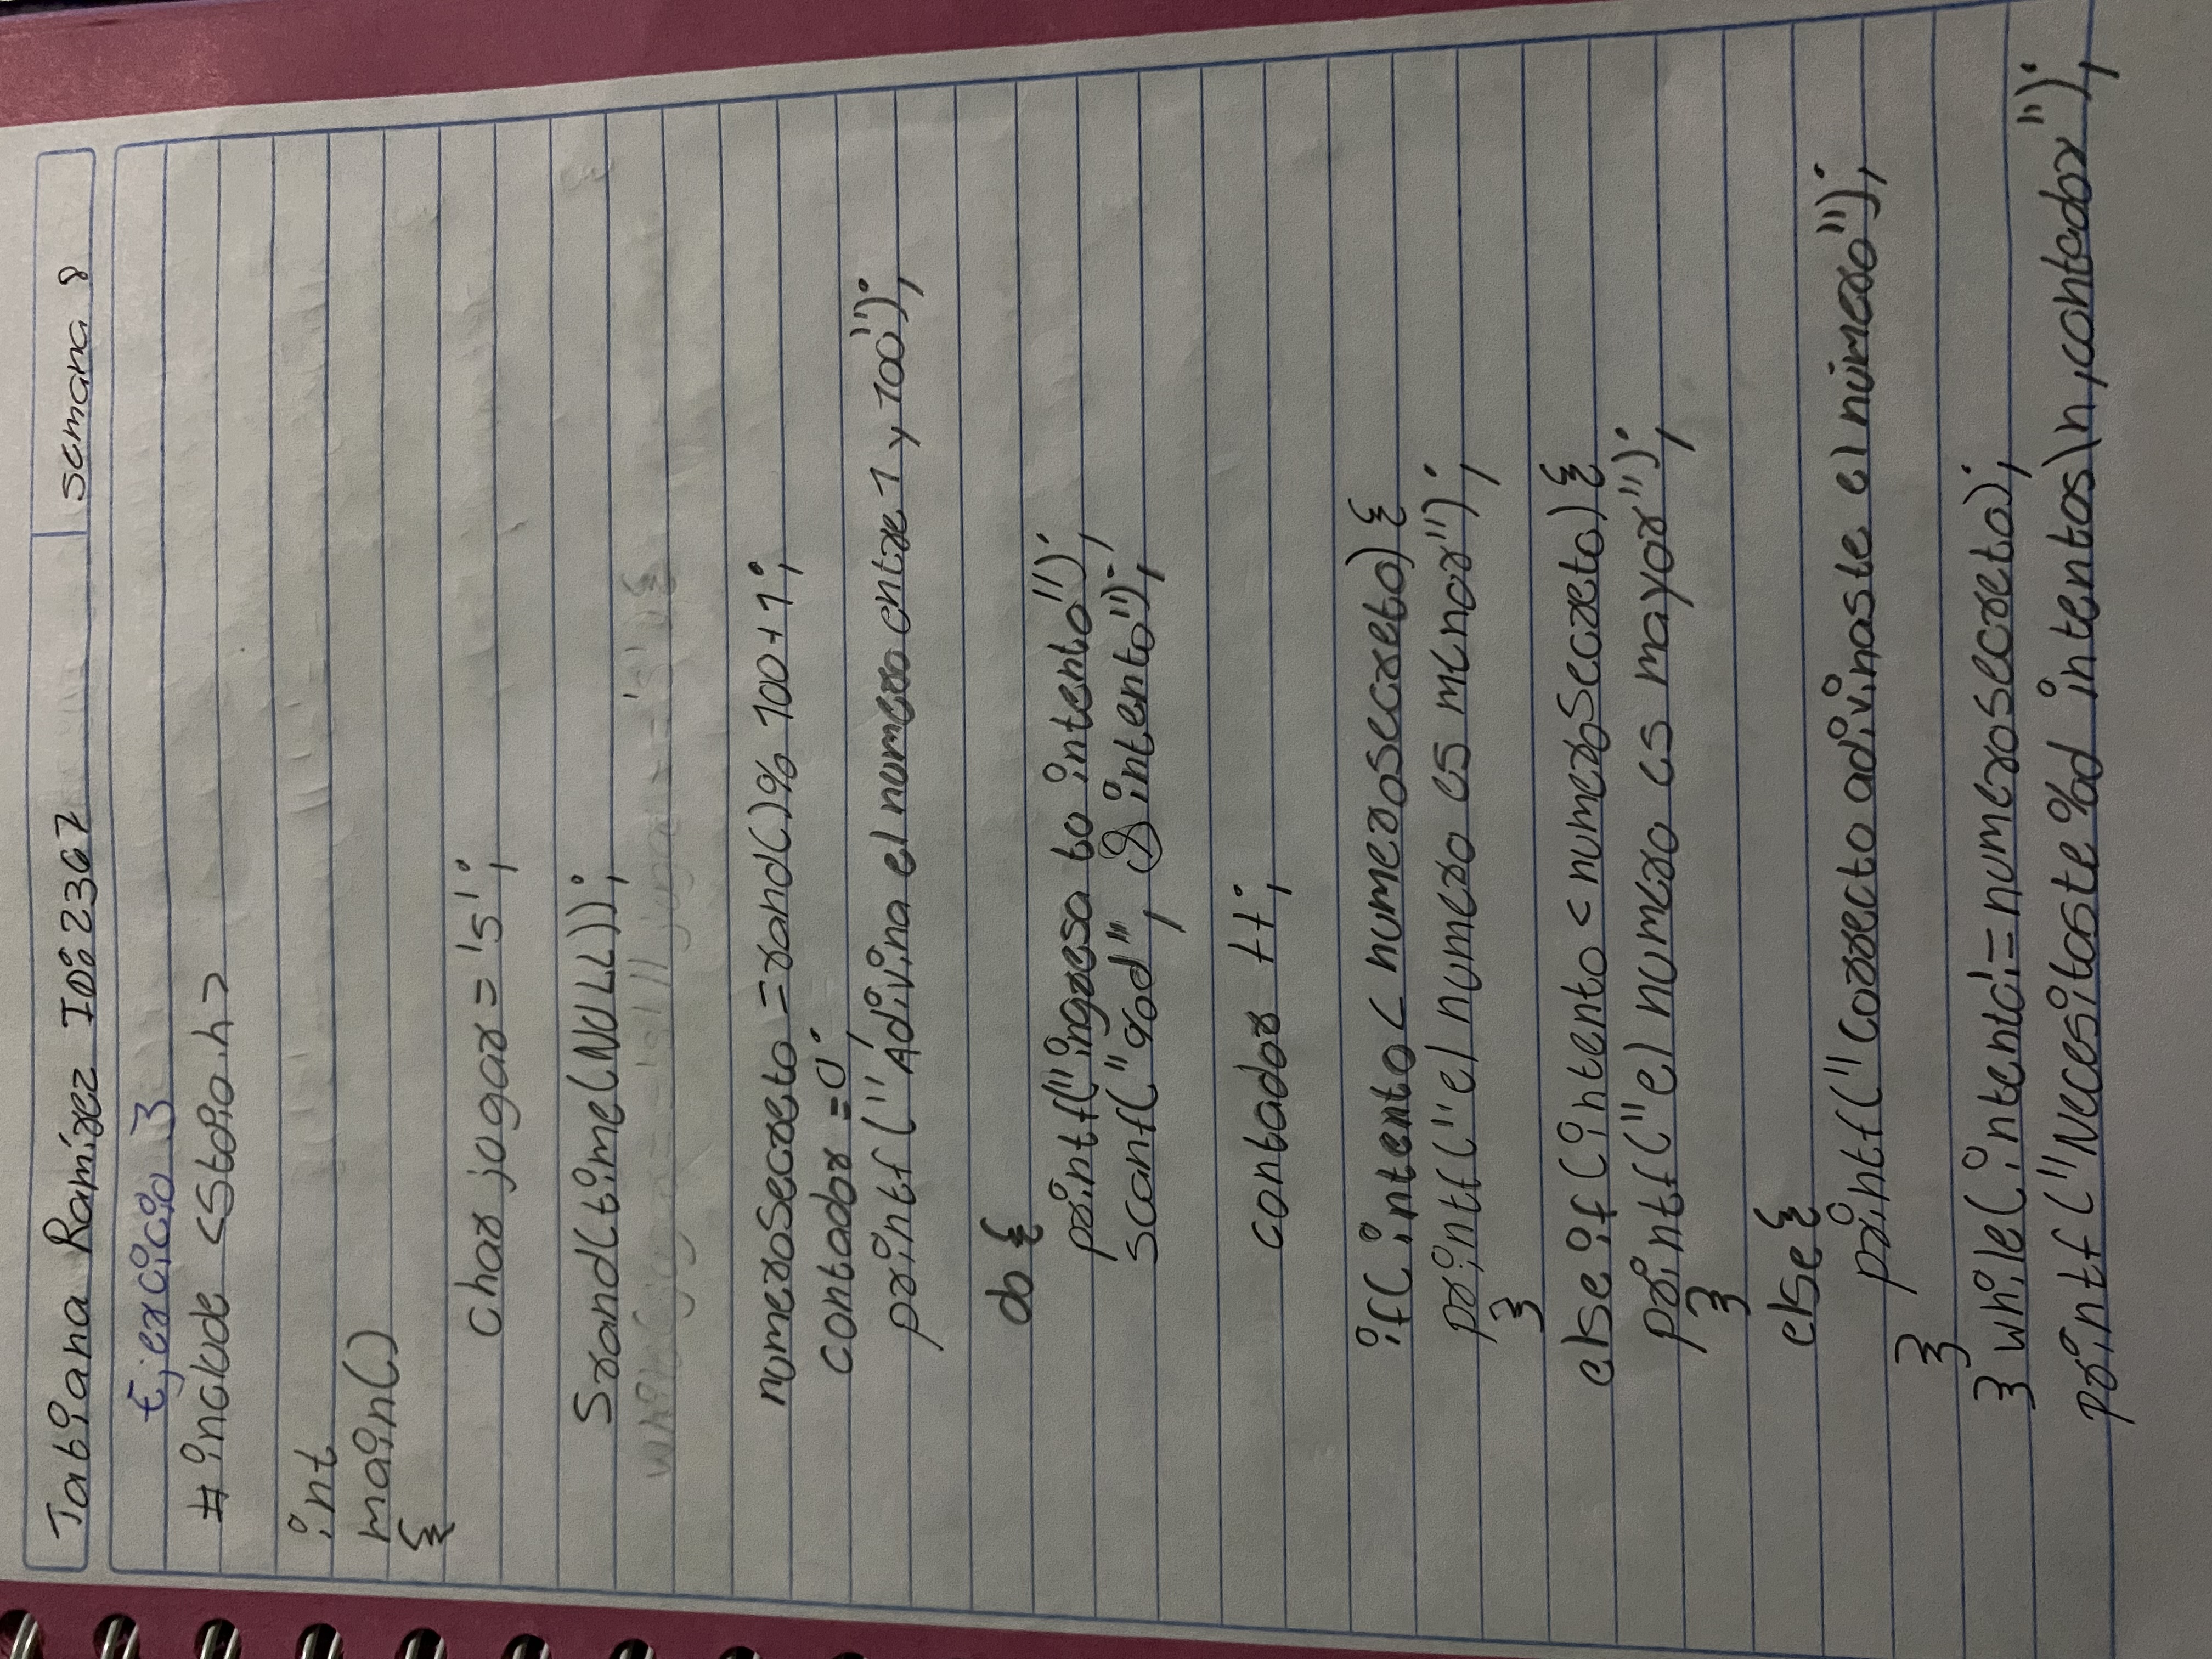 Tatiana Ramírez ID: 2367
semana 8
Ejercicio 3
#include <stdio.h>
int
main()
{
char jugar = 's';
Srand(time(NULL));
while(jugar == 's' || jugar == 'S'){
numerosecreto = rand()% 100+1;
contador = 0;
printf("Adivina el numero entre 1 y 100");
do {
printf("ingresa tu intento");
scanf("%d", &intento");
contador ++;
if(intento < numerosecreto) {
printf("el numero es menor");
}
else if (intento < numerosecreto) {
printf("el numero es mayor");
}
else {
printf("Correcto adivinaste el número");
}
} while(intento != numerosecreto);
printf("Necesitaste %d intentos\n, contador");